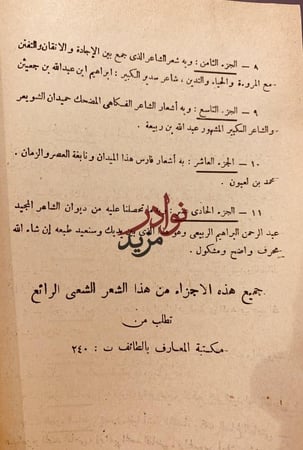 ٨ – الجزء الثامن : وبه شعر الشاعر الذي جمع بين الإجادة والاتقان والتفنن
مع المروءة والحياء والتدين ، شاعر سدير الكبير : ابراهيم ابن عبدالله بن جعيثن
٩ – الجزء التاسع : وبه أشعار الشاعر الفكاهي المضحك حميدان الشويعر
والشاعر الكبير المشهور عبد الله بن ربيعة .
١٠ – الجزء العاشر : به أشعار فارس هذا الميدان ونابغة العصر والزمان .
محمد بن لعبون .
١١ – الجزء الحادي تحصلنا عليه من ديوان الشاعر المجيد
عبد الرحمن البراهيم الربيعي وهو الذي بين يديك وسنعيد طبعه إن شاء الله
بحرف واضح ومشكول .
نوادر
مزيد
جميع هذه الاجزاء من هذا الشعر الشعبى الرائع
تطلب من
مكتبة المعارف بالطائف ت : ٢٤٠